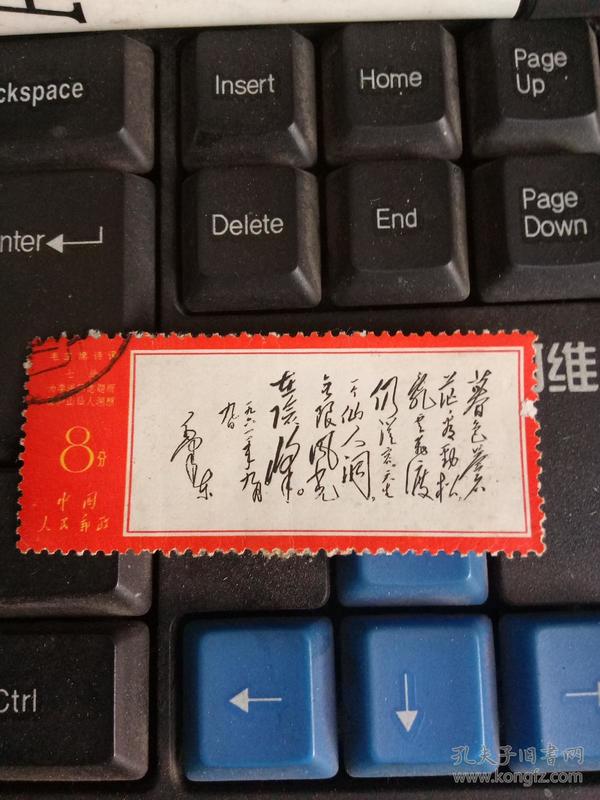 ckspace
Insert
Home
Page
Up
nter
Delete
End
Page
Down
维
毛主席诗词
七绝
为李进同志题所
摄庐山仙人洞照
8分
中国
人民邮政
暮色苍
茫看劲松
乱云飞渡
仍从容天生
一个仙人洞
无限风光
在险峰。
一九六一年九月
九日
毛泽东
Ctrl
孔夫子旧书网
www.kongfz.com